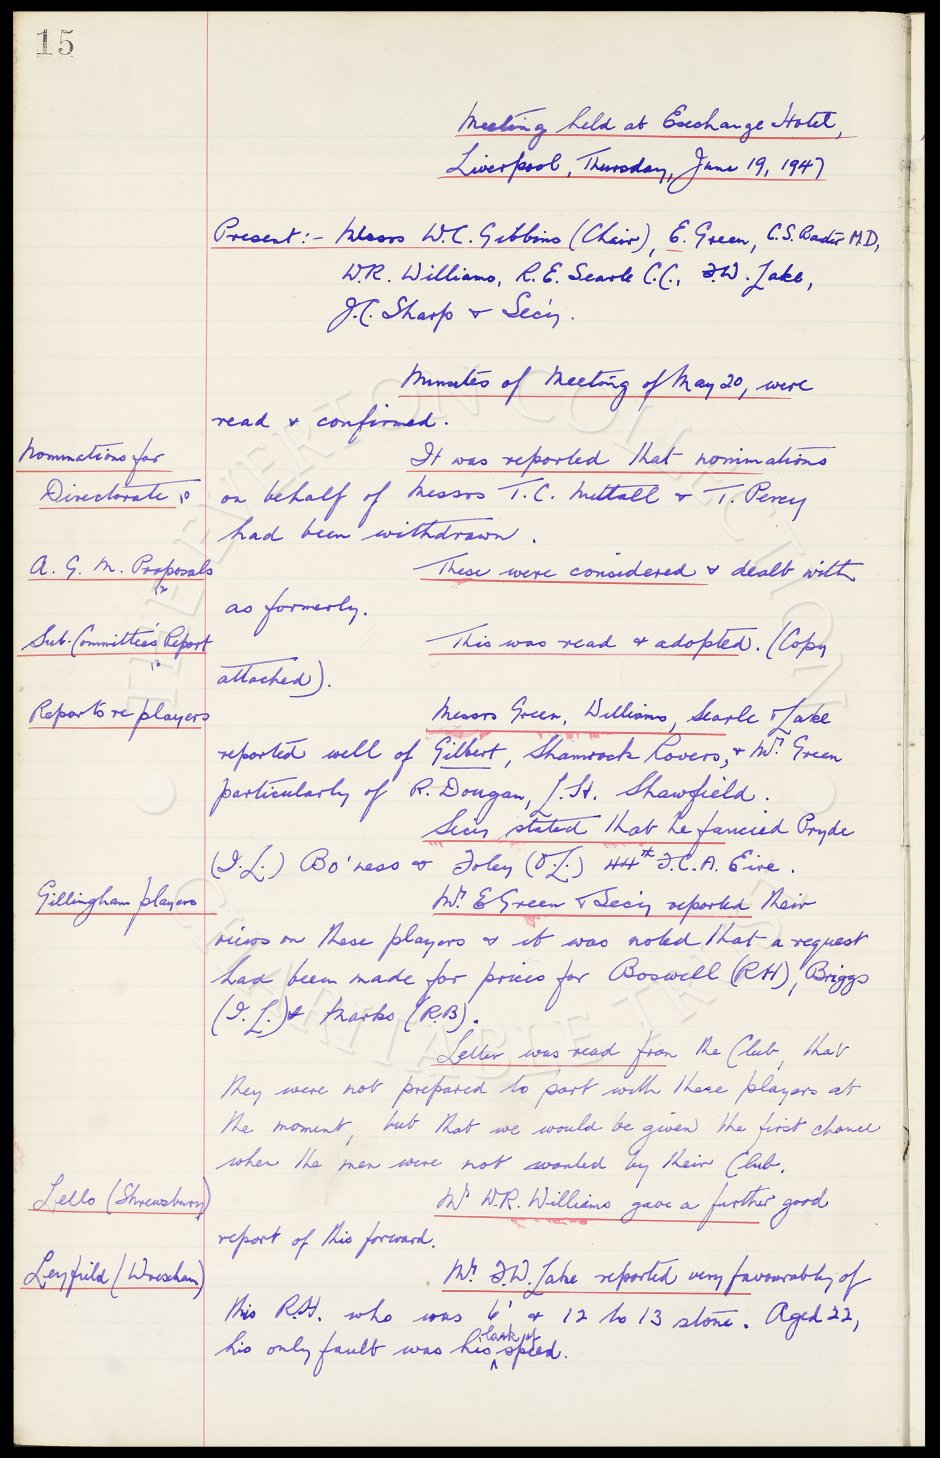 15
Meeting held at Exchange Hotel,
Liverpool, Thursday, June 19, 1947
Present:- Messrs W.C. Gibbins (Chair), E. Green, C.S. Baxter M.D,
W.R. Williams, R.E. Searle C.C., F.W. Lake,
J.C. Sharp & Sec'y.
Minutes of Meeting of May 20, were
read & confirmed.
Nominations for
Directorate
It was reported that nominations
on behalf of Messrs T.C. Nuttall & T. Percy
had been withdrawn.
A. G. M. Proposals
These were considered & dealt with
as formerly.
Sub-Committee's Report
This was read & adopted. (Copy
attached).
Reports re players
Messrs Green, Williams, Searle & Lake
reported well of Gilbert, Shamrock Rovers, & Mr. Green
particularly of R. Dougan, L.H. Shawfield.
Secy stated that he fancied Pryde
(I.L.) Bo'ness & Foley (O.L.) 44th F.C.A. Eire.
Gillingham players
Mr. E Green & Secy reported their
views on these players & it was noted that a request
had been made for prices for Boswell (RH), Briggs
(I.L.) & Marks (R.B).
Letter was read from the Club, that
they were not prepared to part with these players at
the moment, but that we would be given the first chance
when the men were not wanted by their Club.
Lello (Shrewsbury)
Mr W.R. Williams gave a further good
report of this forward.
Leyfield (Wrexham)
Mr. F.W. Lake reported very favourably of
this R.H. who was 6' & 12 to 13 stone. Aged 22,
his only fault was his lack of speed.
THE EVERTON COLLECTION
CHARITABLE TRUST